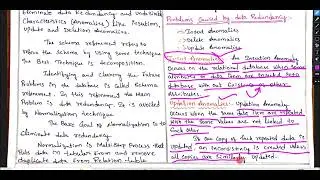 eliminate data Redundancy and Undesirable
Characteristics (Anomalies) like Insertion,
Update and Deletion Anomalies.
The Schema refinement refers to
refine the Schema by using some technique
the Best Technique is decomposition.
Identifying and clearing the Future
Problems in the database is called Schema
refinement. In this refinement the Main
Problem is data redundancy. It is avoided
by Normalization technique
The Base Goal of Normalization is to
Eliminate data redundancy.
Normalization is Multi Step Process that
Puts data in tabular Form and remove
duplicate data From Relation table
Problems Caused by data Redundancy:
Insert Anomalies
Delete Anomalies
Update Anomalies
Insert Anomalies: An Insertion Anomaly
occurs on the relational database when some
attributes or data item are inserted into
database with out existence other
attributes.
Updation Anomalies: Updating Anomaly
occurs when the same data item are repeated
with the same Values are not linked to
each other
One Copy of Such repeated data is
updated an inconsistency is created unless
all copies are Similarly Updated.